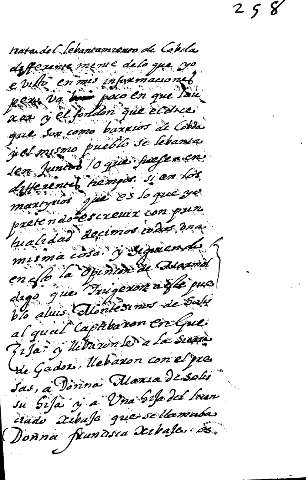 258
trata del lebantamiento de Cobda
differente mente de lo que yo
e visto en mis informaciones
pero va poco en que
y el fondon que el dice
que son como barrios de Cobda
y el mismo pueblo se lebanta
sen juntos / o que fuese en
differentes tiempos si en los
martyrios que es lo que yo
pretendo escrevir con pun
tualidad decimos todos una
misma cosa. y siguiendo
en esto la opinion de
digo que
a luis Montesinos de Solis
al qual captibaron en Gue
zija y llebaronle a la sierra
de Gador. llebaron con el pre
sas, a Donna Maria de Solis
su hija y a una hija del licen
ciado xibaje que se llamaba
Donna francisca xibaje. de